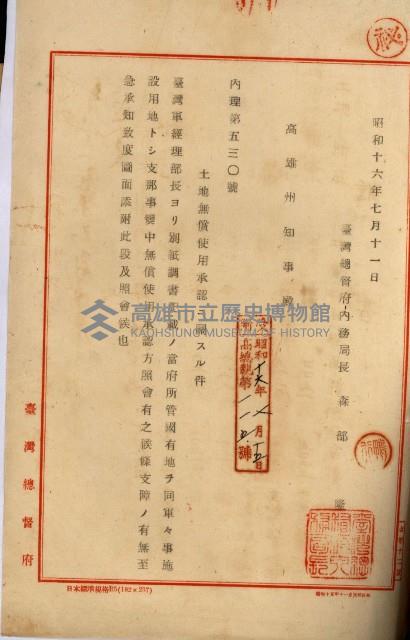 秘
昭和十六年七月十一日
臺灣總督府內務局長 森部 隆
高雄州知事殿
內理第五三〇號
土地無償使用承認ニ關スル件
臺灣軍經理部長ヨリ別紙調書記載ノ當府所管國有地ヲ同軍々事施
設用地トシ支那事變中無償使用承認方照會有之候條支障ノ有無至
急承知致度圖面添附此段及照會候也
昭和十六年
臺灣總督府
日本標準規格B5(182×257)
高雄市立歷史博物館
KAOHSIUNG HISTORY MUSEUM